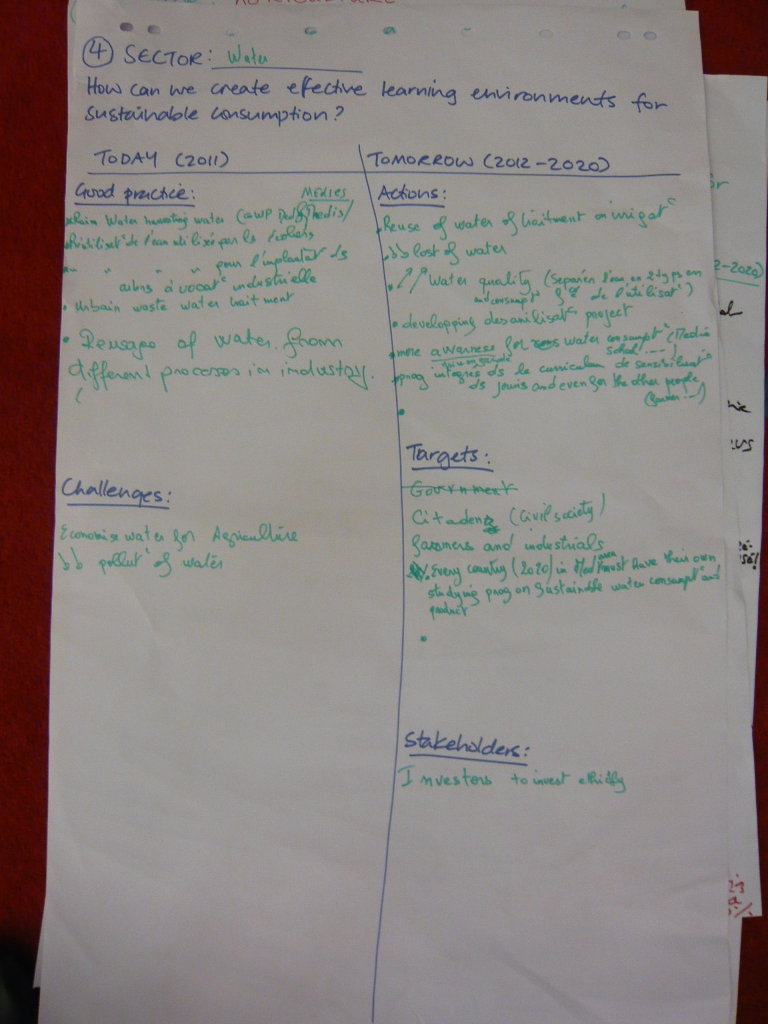 AGRICULTURE
④ SECTOR: Water
How can we create effective learning environments for
sustainable consumption?
TODAY (2011)
Good practice: MEDIES
Rain Water water (GWP Med &
Réutilisat° de l'eau utilisée par les
" " " pour l'implantat° ds
arbres à vocat° industrielle
• Urbain waste water traitment
• Reusage of water from
different processes in industry.
Challenges:
Economise water for Agriculture
↓↓ pollut° of water
TOMORROW (2012-2020)
Actions:
• Reuse of water of traitment on irrigat°
• ↓↓ lost of water
• ↗↗ Water quality (Séparer l'eau en 2 types en
de l'utilisat°)
• developping desanilisat° project
• more awarness for water consumpt° (Media
School ...)
• prog intégrés ds le curriculum de sensibilisat°
ds jeunes and even for the other people
•
Targets:
Government
Citadens (Civil society)
farmers and industrials
Every country (2020) in Med area must have their own
studying prog on Sustainable water consumpt° and
product
•
Stakeholders:
Investors to invest ethicly
2-2020)